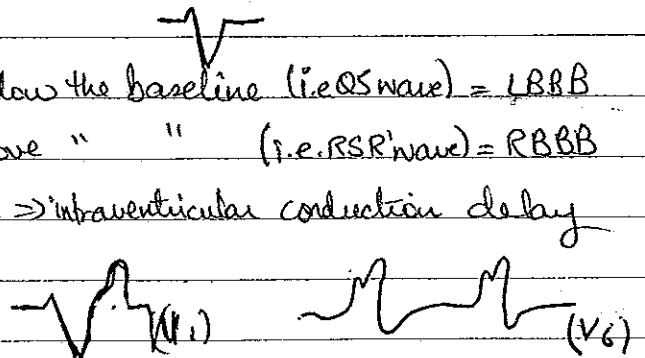 low the baseline (i.e QS wave) = LBBB
ove " " (i.e. RSR' wave) = RBBB
=> intraventricular conduction delay
(V1) (V6)